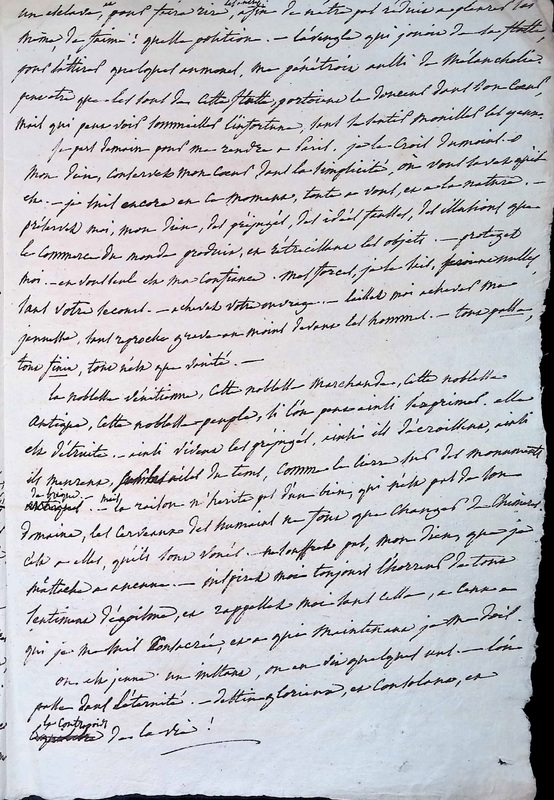 un esclave, pour faire rire, afin de n'être pas réduis a pleurer les
même de faim! quelle position. – l'aveugle qui jouoit de sa flutte
pour attirer quelques aumones, me pénétroit aussi de Mélancholie.
peut etre que les sons de cette flutte, portoient la douceur dans son coeur,
mais qui peut voir sommeiller l'infortune, sans se sentir mouiller les yeux.
je pars demain pour me rendre a Paris, je le crois du moins. O
mon dieu, conservez mon coeur dans la simplicité, où vous savez qu'il
est. – je suis encore en ce moment, toute a vous, et a la nature. –
préservez moi, mon dieu, des préjugés, des idées fausses, des illusions que
le commerce du monde produit, en rétrécissant les objets. – protegez
moi. – en vous seul est ma confiance. mes forces, je le sais, seroient nulles
sans votre secours. – achevez votre ouvrage. – laissez moi achever ma
jeunesse, sans reproche grave au moins devant les hommes. – tout passe,
tout finit, tout n'est que vanité. –
la noblesse vénitienne, cette noblesse marchande, cette noblesse
antique, cette noblesse peuple, si l'on peut ainsi s'exprimer, elle
est détruite. – ainsi vivent les préjugés, ainsi ils s'accroissent, ainsi
ils meurent, ailes du tems, comme le lierre sur des monuments
de brique. – mais la raison n'hérite pas d'un bien, qui n'est pas de son
domaine, les cerveaux des humains ne font que changer de chimères.
c'est a elles, qu'ils sont voués. – ne souffrez pas, mon dieu, que je
m'attache a aucune. – inspirez moi toujours l'horreur de tout
sentiment d'égoïsme, et rappellez moi sans cesse, a ceux a
qui je me suis consacré, et a qui maintenant je me dois.
on est jeune un instant, on en dit quelques uns. – l'on
passe dans l'éternité. – destin glorieux, et consolant, et
le contrepoids de la vie!